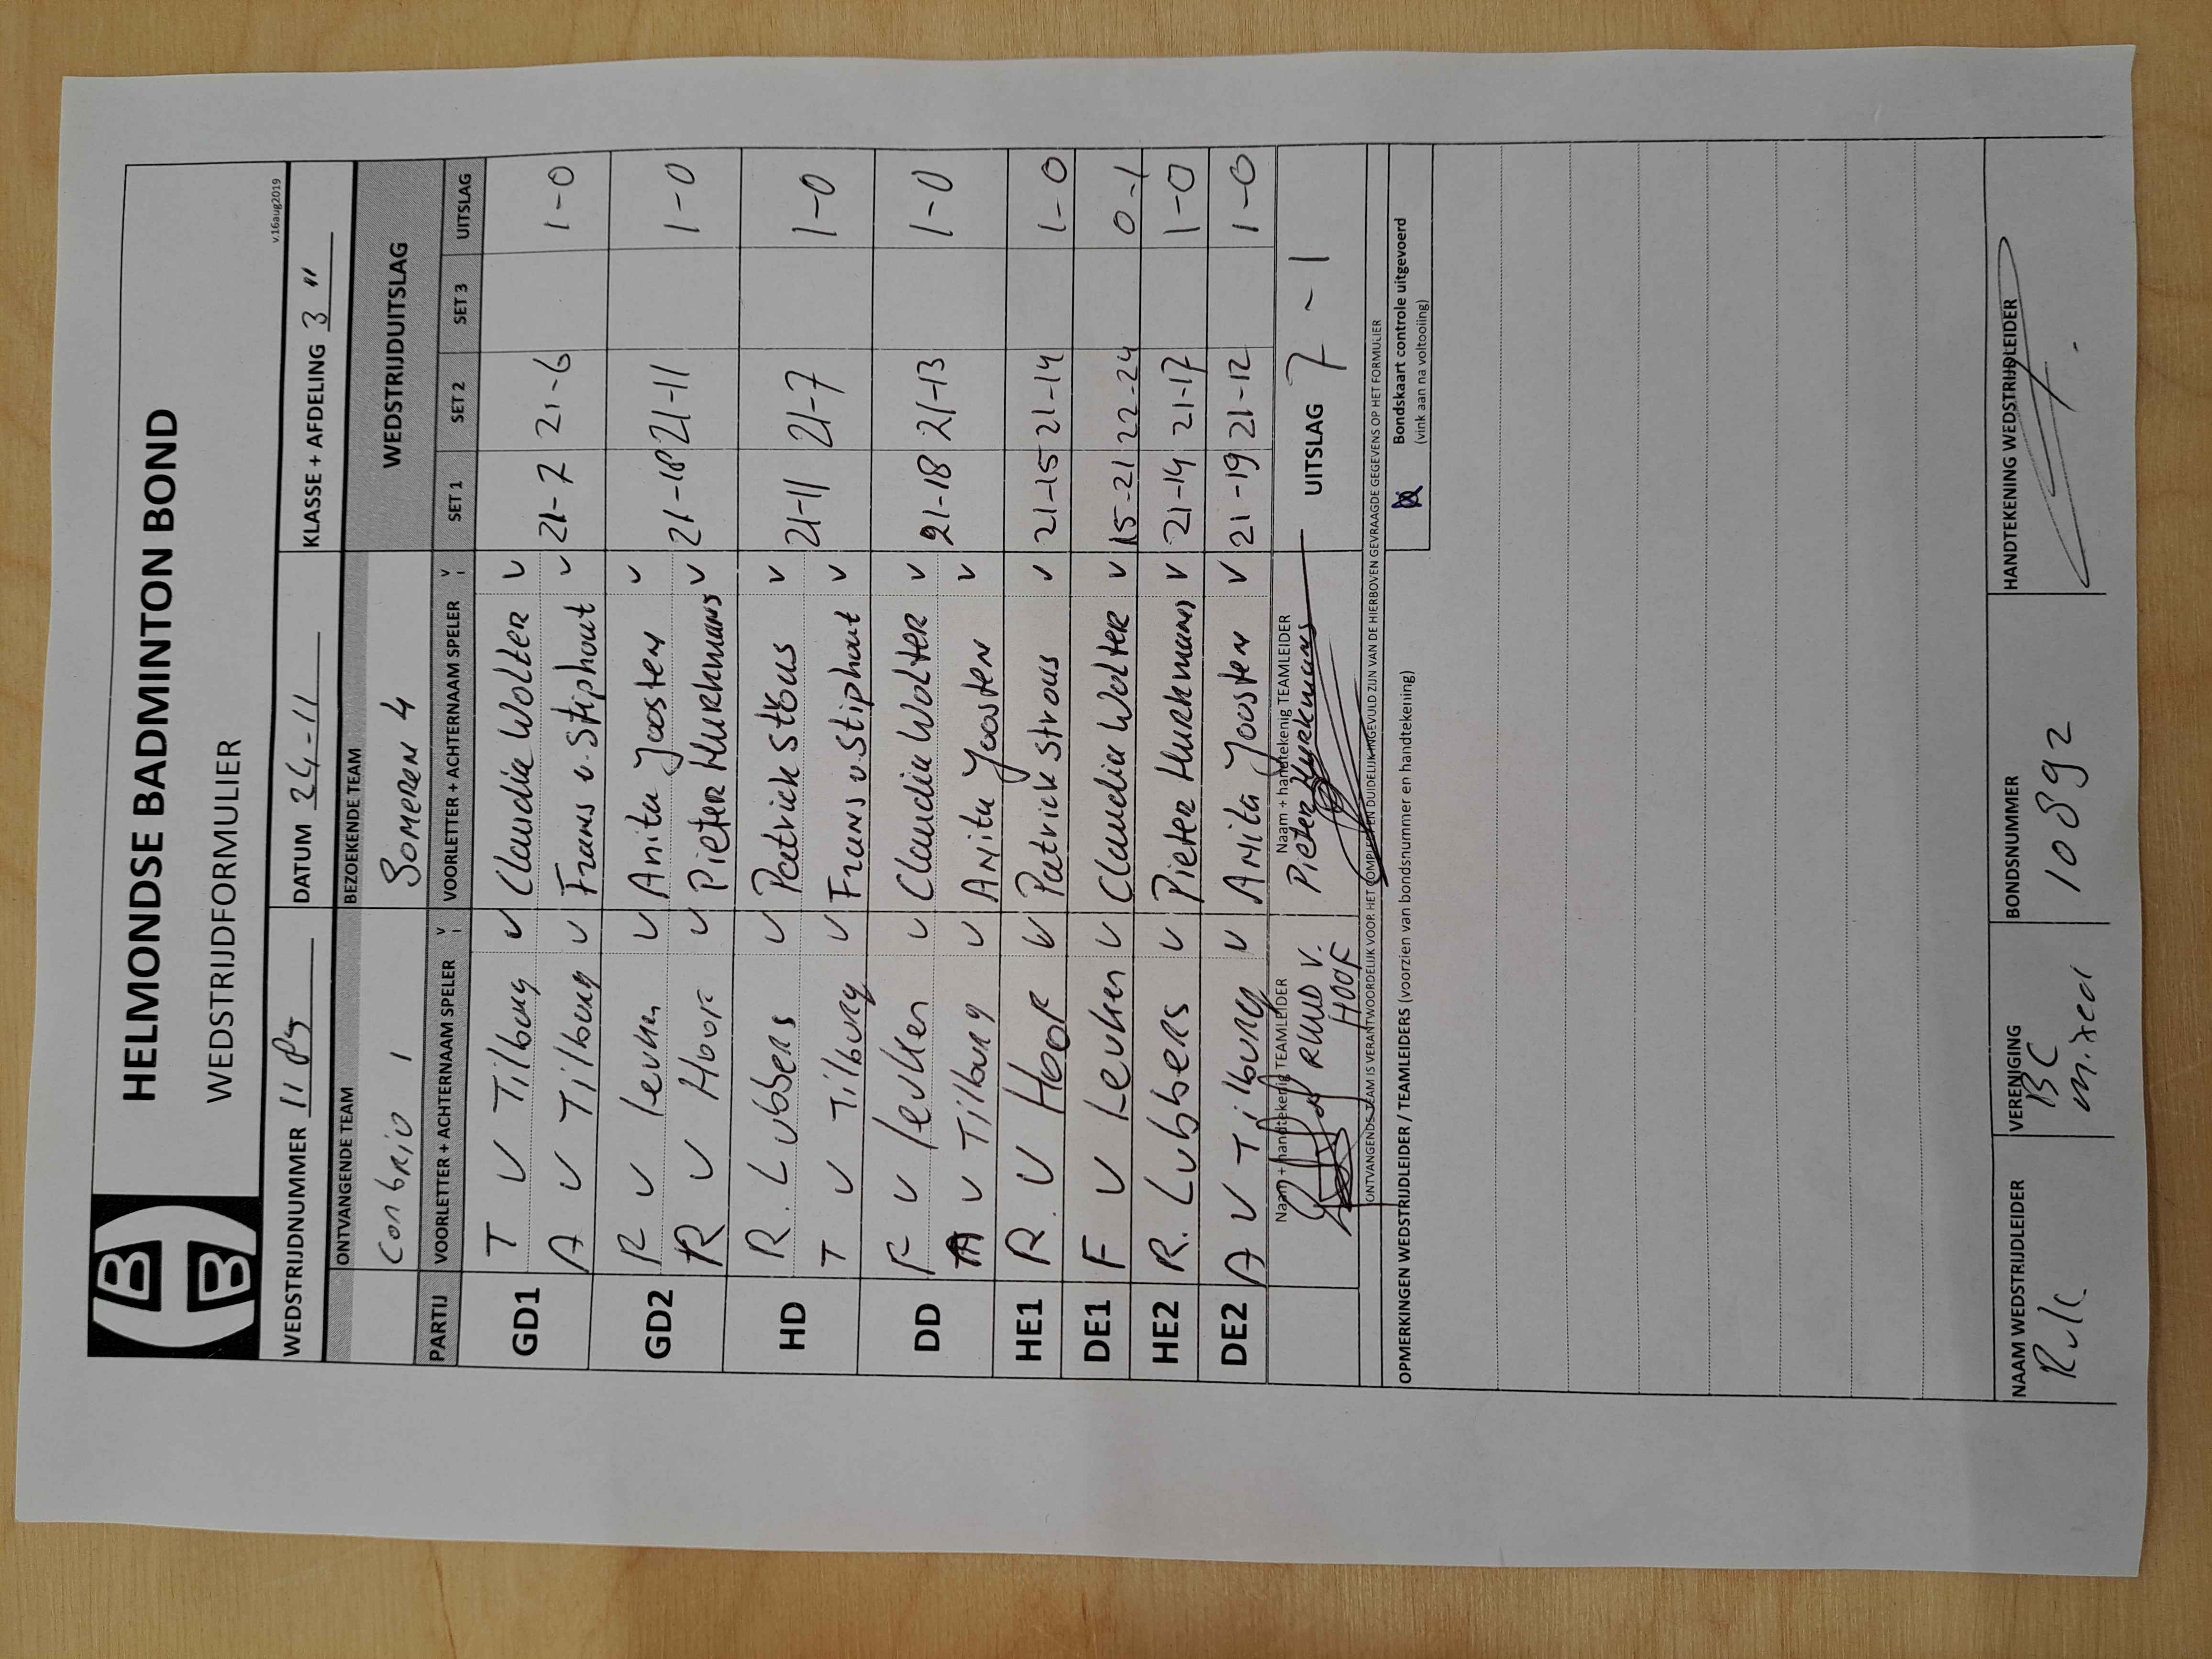 HELMONDSE BADMINTON BOND
WEDSTRIJDFORMULIER
v.16aug2019
WEDSTRIJDNUMMER DATUM 24-11 KLASSE + AFDELING 3 "
ONTVANGENDE TEAM BEZOEKENDE TEAM WEDSTRIJDUITSLAG
Con brio 1 SOMEREN 4
PARTIJ VOORLETTER + ACHTERNAAM SPELER V VOORLETTER + ACHTERNAAM SPELER V SET 1 SET 2 SET 3 UITSLAG
GD1 T V Tilburg v Claudia Wolter v
A V Tilburg v Frans v. Stiphout v 21-7 21-6 1-0
GD2 F V Leuken v Anita Joosten v
R V Hoof v Pieter Hurkmans v 21-18 21-11 1-0
HD R. Lubbers v Patrick Strous v 21-11 21-7 1-0
T V Tilburg v Frans v. Stiphout v
DD F V Leuken v Claudia Wolter v 21-18 21-13 1-0
A V Tilburg v Anita Joosten v
HE1 R. V Hoof v Patrick Strous v 21-15 21-14 1-0
DE1 F V Leuken v Claudia Wolter v 15-21 22-24 0-1
HE2 R. Lubbers v Pieter Hurkmans v 21-14 21-17 1-0
DE2 A V Tilburg v Anita Joosten v 21-19 21-12 1-0
Naam + handtekenig TEAMLEIDER Naam + handtekenig TEAMLEIDER
RUUD V. HOOF Pieter Hurkmans UITSLAG 7-1
ONTVANGENDS TEAM IS VERANTWOORDELIJK VOOR HET COMPLEET EN DUIDELIJK INGEVULD ZIJN VAN DE HIERBOVEN GEVRAAGDE GEGEVENS OP HET FORMULIER
OPMERKINGEN WEDSTRIJDLEIDER / TEAMLEIDERS (voorzien van bondsnummer en handtekening)
Bondskaart controle uitgevoerd
(vink aan na voltooiing)
NAAM WEDSTRIJDLEIDER VERENIGING BONDSNUMMER HANDTEKENING WEDSTRIJDLEIDER
BC 10892